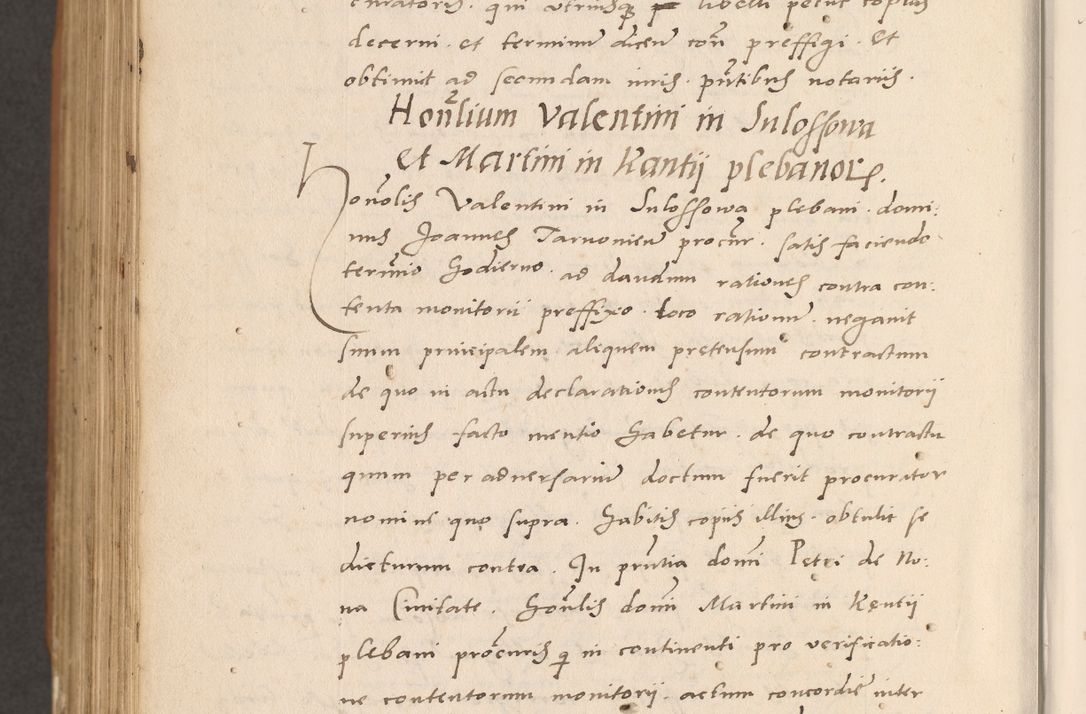 curatoris. qui utriusque libelli petiit copias
decerni. et terminum dicendi contra preffigi. Et
obtinuit ad secundam iuris. pñtibus notariis.
Honlium Valentini in Sulossowa
et Martini in Kantii plebanor.
Honolis Valentini in Sulossowa plebani. domi:
nus Joannes Tarnovien procur. satis faciendo
termio hodierno. ad dandum rationes contra con:
tenta monitorii preffixo. loco rationum. negavit
suum principalem aliquem pretensum contractum
de quo in actu declarationis contentorum monitorii
superius facto mentio habetur. de quo contractu
quum per adversarium doctum fuerit procurator
nomine quo supra. habitis copiis illius. obtulit se
dicturum contra. In pñtia domi Petri de No:
va Civitate. honlis domi Martini in Kentii
plebani procuris qi in continenti pro verificatio:
ne contentorum monitorii. actum concordie inter